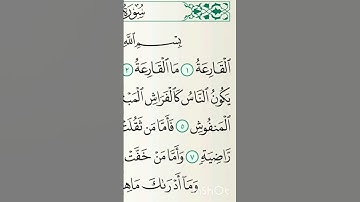 سُورَة
بِسْمِ ٱللَّهِ
ٱلْقَارِعَةُ ١ مَا ٱلْقَارِعَةُ ٢
يَكُونُ ٱلنَّاسُ كَٱلْفَرَاشِ ٱلْمَبْ
ٱلْمَنفُوشِ ٥ فَأَمَّا مَن ثَقُلَتْ
رَّاضِيَةٍ ٧ وَأَمَّا مَنْ خَفَّتْ
وَمَآ أَدْرَىٰكَ مَاهِ